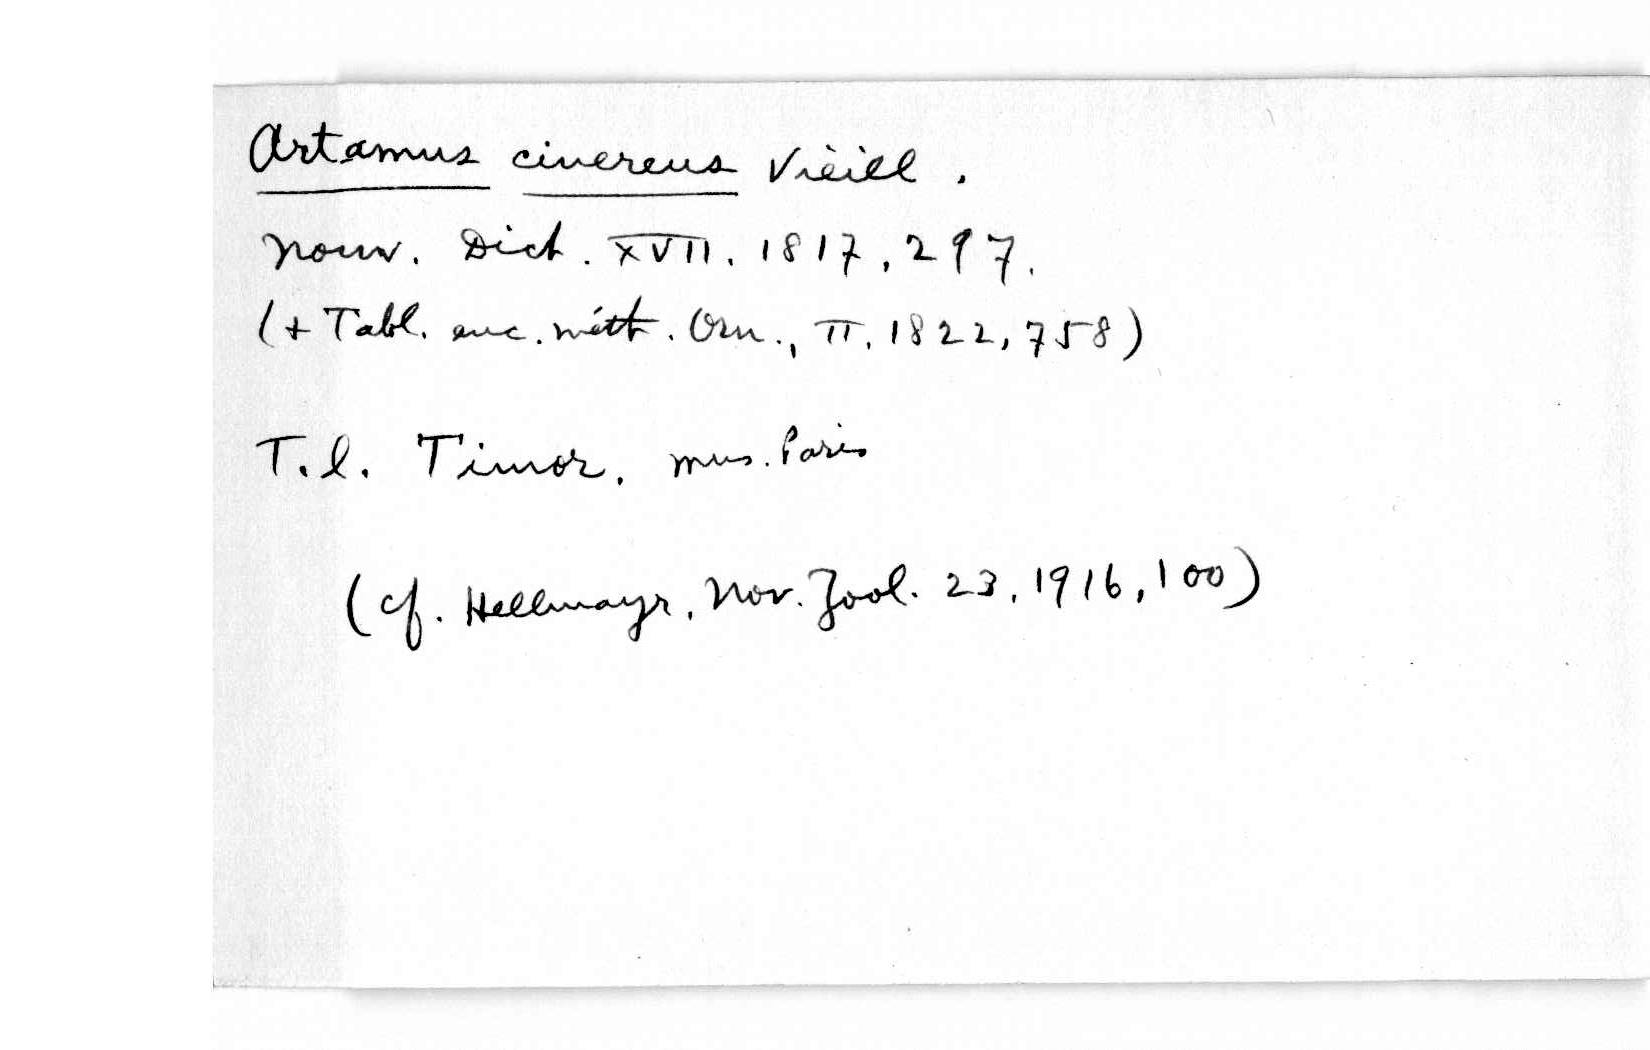 Artamus cinereus Vieill.
Nouv. Dict. XVII. 1817, 297.
(+ Tabl. enc. méth. Orn., II, 1822, 758)
T.l. Timor. Mus. Paris
(cf. Hellmayr, Nov. Zool. 23, 1916, 100)